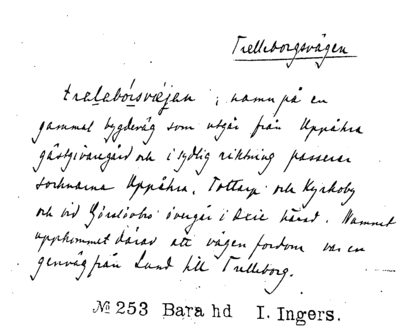 Trelleborgsvägen
trelebórsvæjen, namn på en
gammal bygdeväg som utgår från Uppåkra
gästgivargård och i sydlig riktning passerar
socknarna Uppåkra, Tottarp och Kyrkoby
och vid Görslövsbro övergår i Oxie härad. Namnet
uppkommet därav att vägen fordom var en
genväg från Lund till Trelleborg.
№ 253 Bara hd I. Ingers.